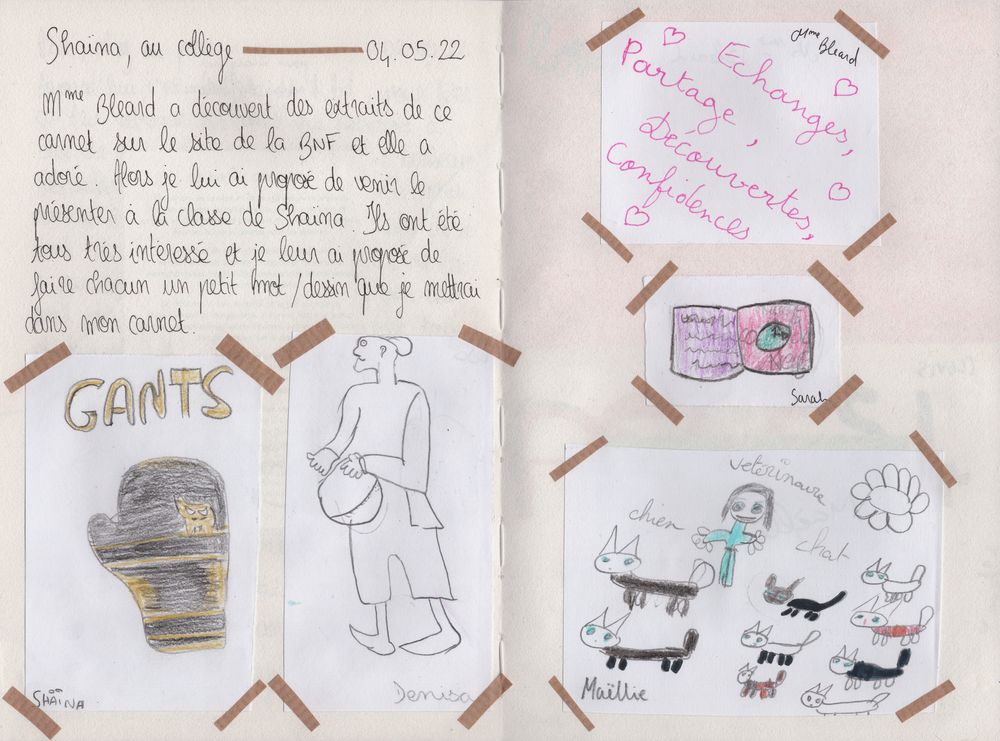 Shaïna, au collège 04.05.22
Mme Bleard a découvert des extraits de ce
carnet sur le site de la BNF et elle a
adoré. Alors je lui ai proposé de venir le
présenter à la classe de Shaïna. Ils ont été
tous très intéressé et je leur ai proposé de
faire chacun un petit mot/dessin que je mettrai
dans mon carnet.
GANTS
SHAÏNA
Denisa
Mme Bleard
Echanges,
Partage,
Découvertes,
Confidences
Sarah
vetérinaire
chien
chat
Maëllie